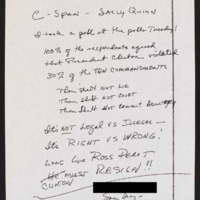 C-Span - Sally Quinn
I took a poll at the polls Tuesday!
100% of the respondents agreed
that President Clinton violated
30% of the TEN COMMANDMENTS
Thou shalt not lie
Thou shalt not
Thou shalt not commit adultery
It's NOT Legal vs Illegal -
It's RIGHT vs WRONG!
LONG LIVE ROSS PEROT
CLINTON MUST RESIGN!!
San Diego